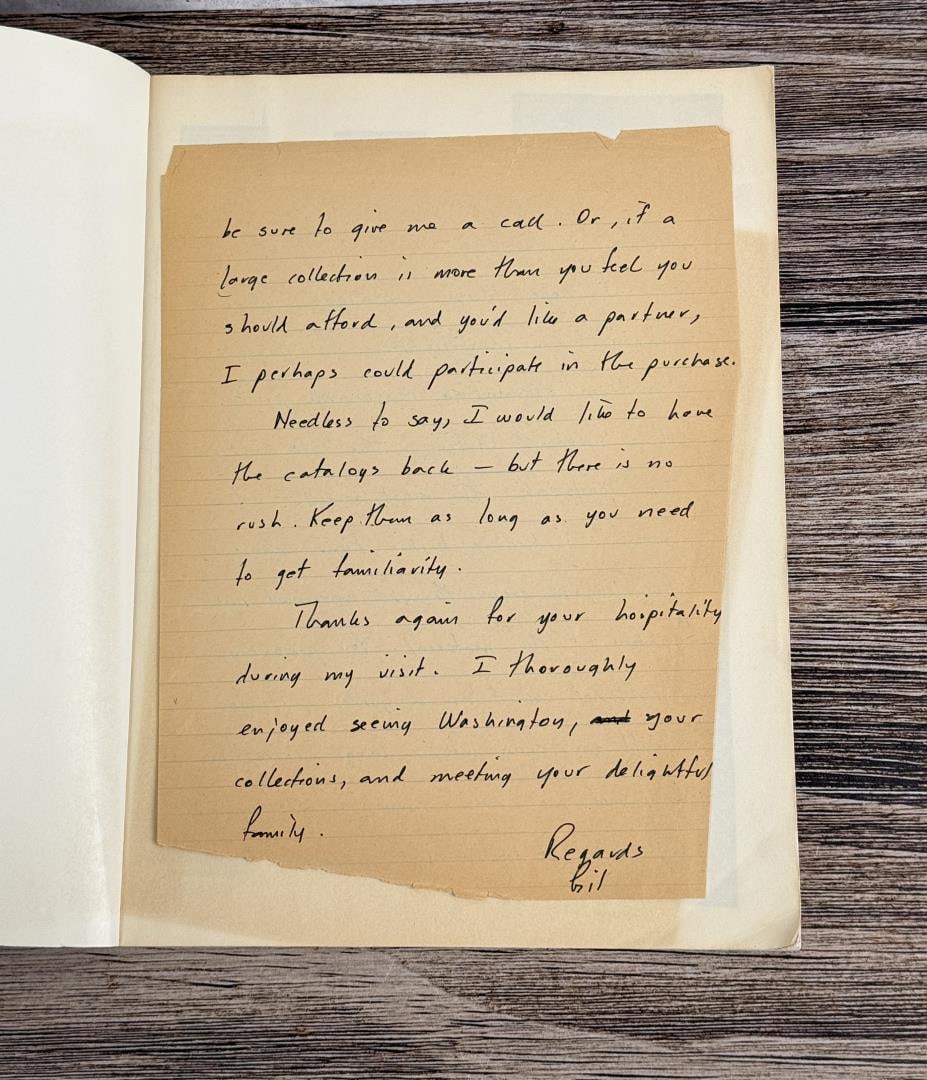 be sure to give me a call. Or, if a
large collection is more than you feel you
should afford, and you'd like a partner,
I perhaps could participate in the purchase.
Needless to say, I would like to have
the catalogs back – but there is no
rush. Keep them as long as you need
to get familiarity.
Thanks again for your hospitality
during my visit. I thoroughly
enjoyed seeing Washington, and your
collections, and meeting your delightful
family.
Regards
Gil